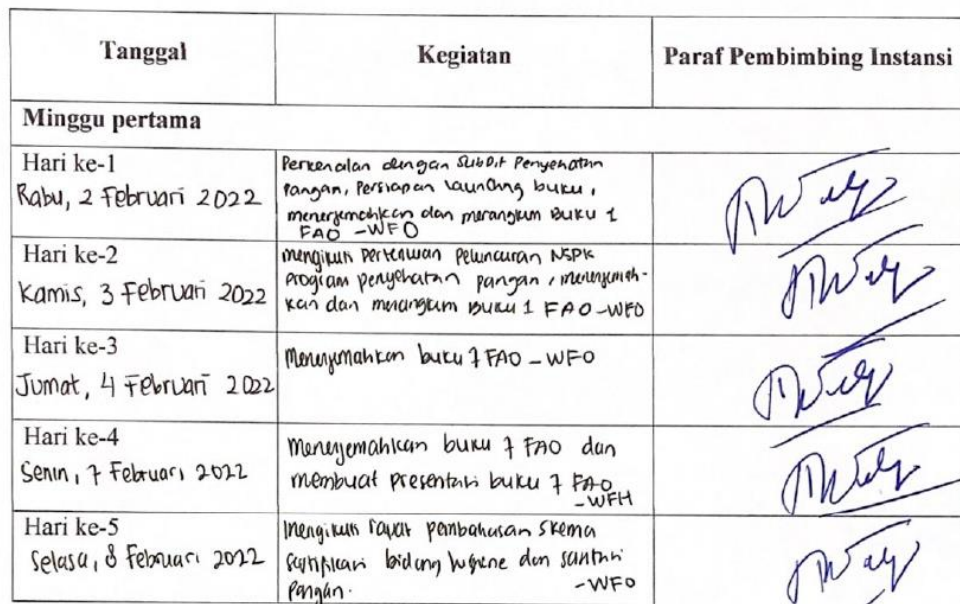 Tanggal
Kegiatan
Paraf Pembimbing Instansi
Minggu pertama
Hari ke-1
Rabu, 2 Februari 2022
Perkenalan dengan SubDit Penyehatan
Pangan, Persiapan launching buku,
menerjemahkan dan merangkum Buku 1
FAO - WFO
Hari ke-2
Kamis, 3 Februari 2022
mengikuti Pertemuan Peluncuran NSPK
Program penyehatan pangan, menerjemah-
kan dan merangkum Buku 1 FAO - WFO
Hari ke-3
Jumat, 4 Februari 2022
Menerjemahkan buku 7 FAO - WFO
Hari ke-4
Senin, 7 Februari 2022
Menerjemahkan buku 7 FAO dan
membuat presentasi buku 7 FAO
- WFH
Hari ke-5
Selasa, 8 Februari 2022
Mengikuti rapat pembahasan Skema
Sertifikasi bidang hygiene dan sanitasi
Pangan. - WFO